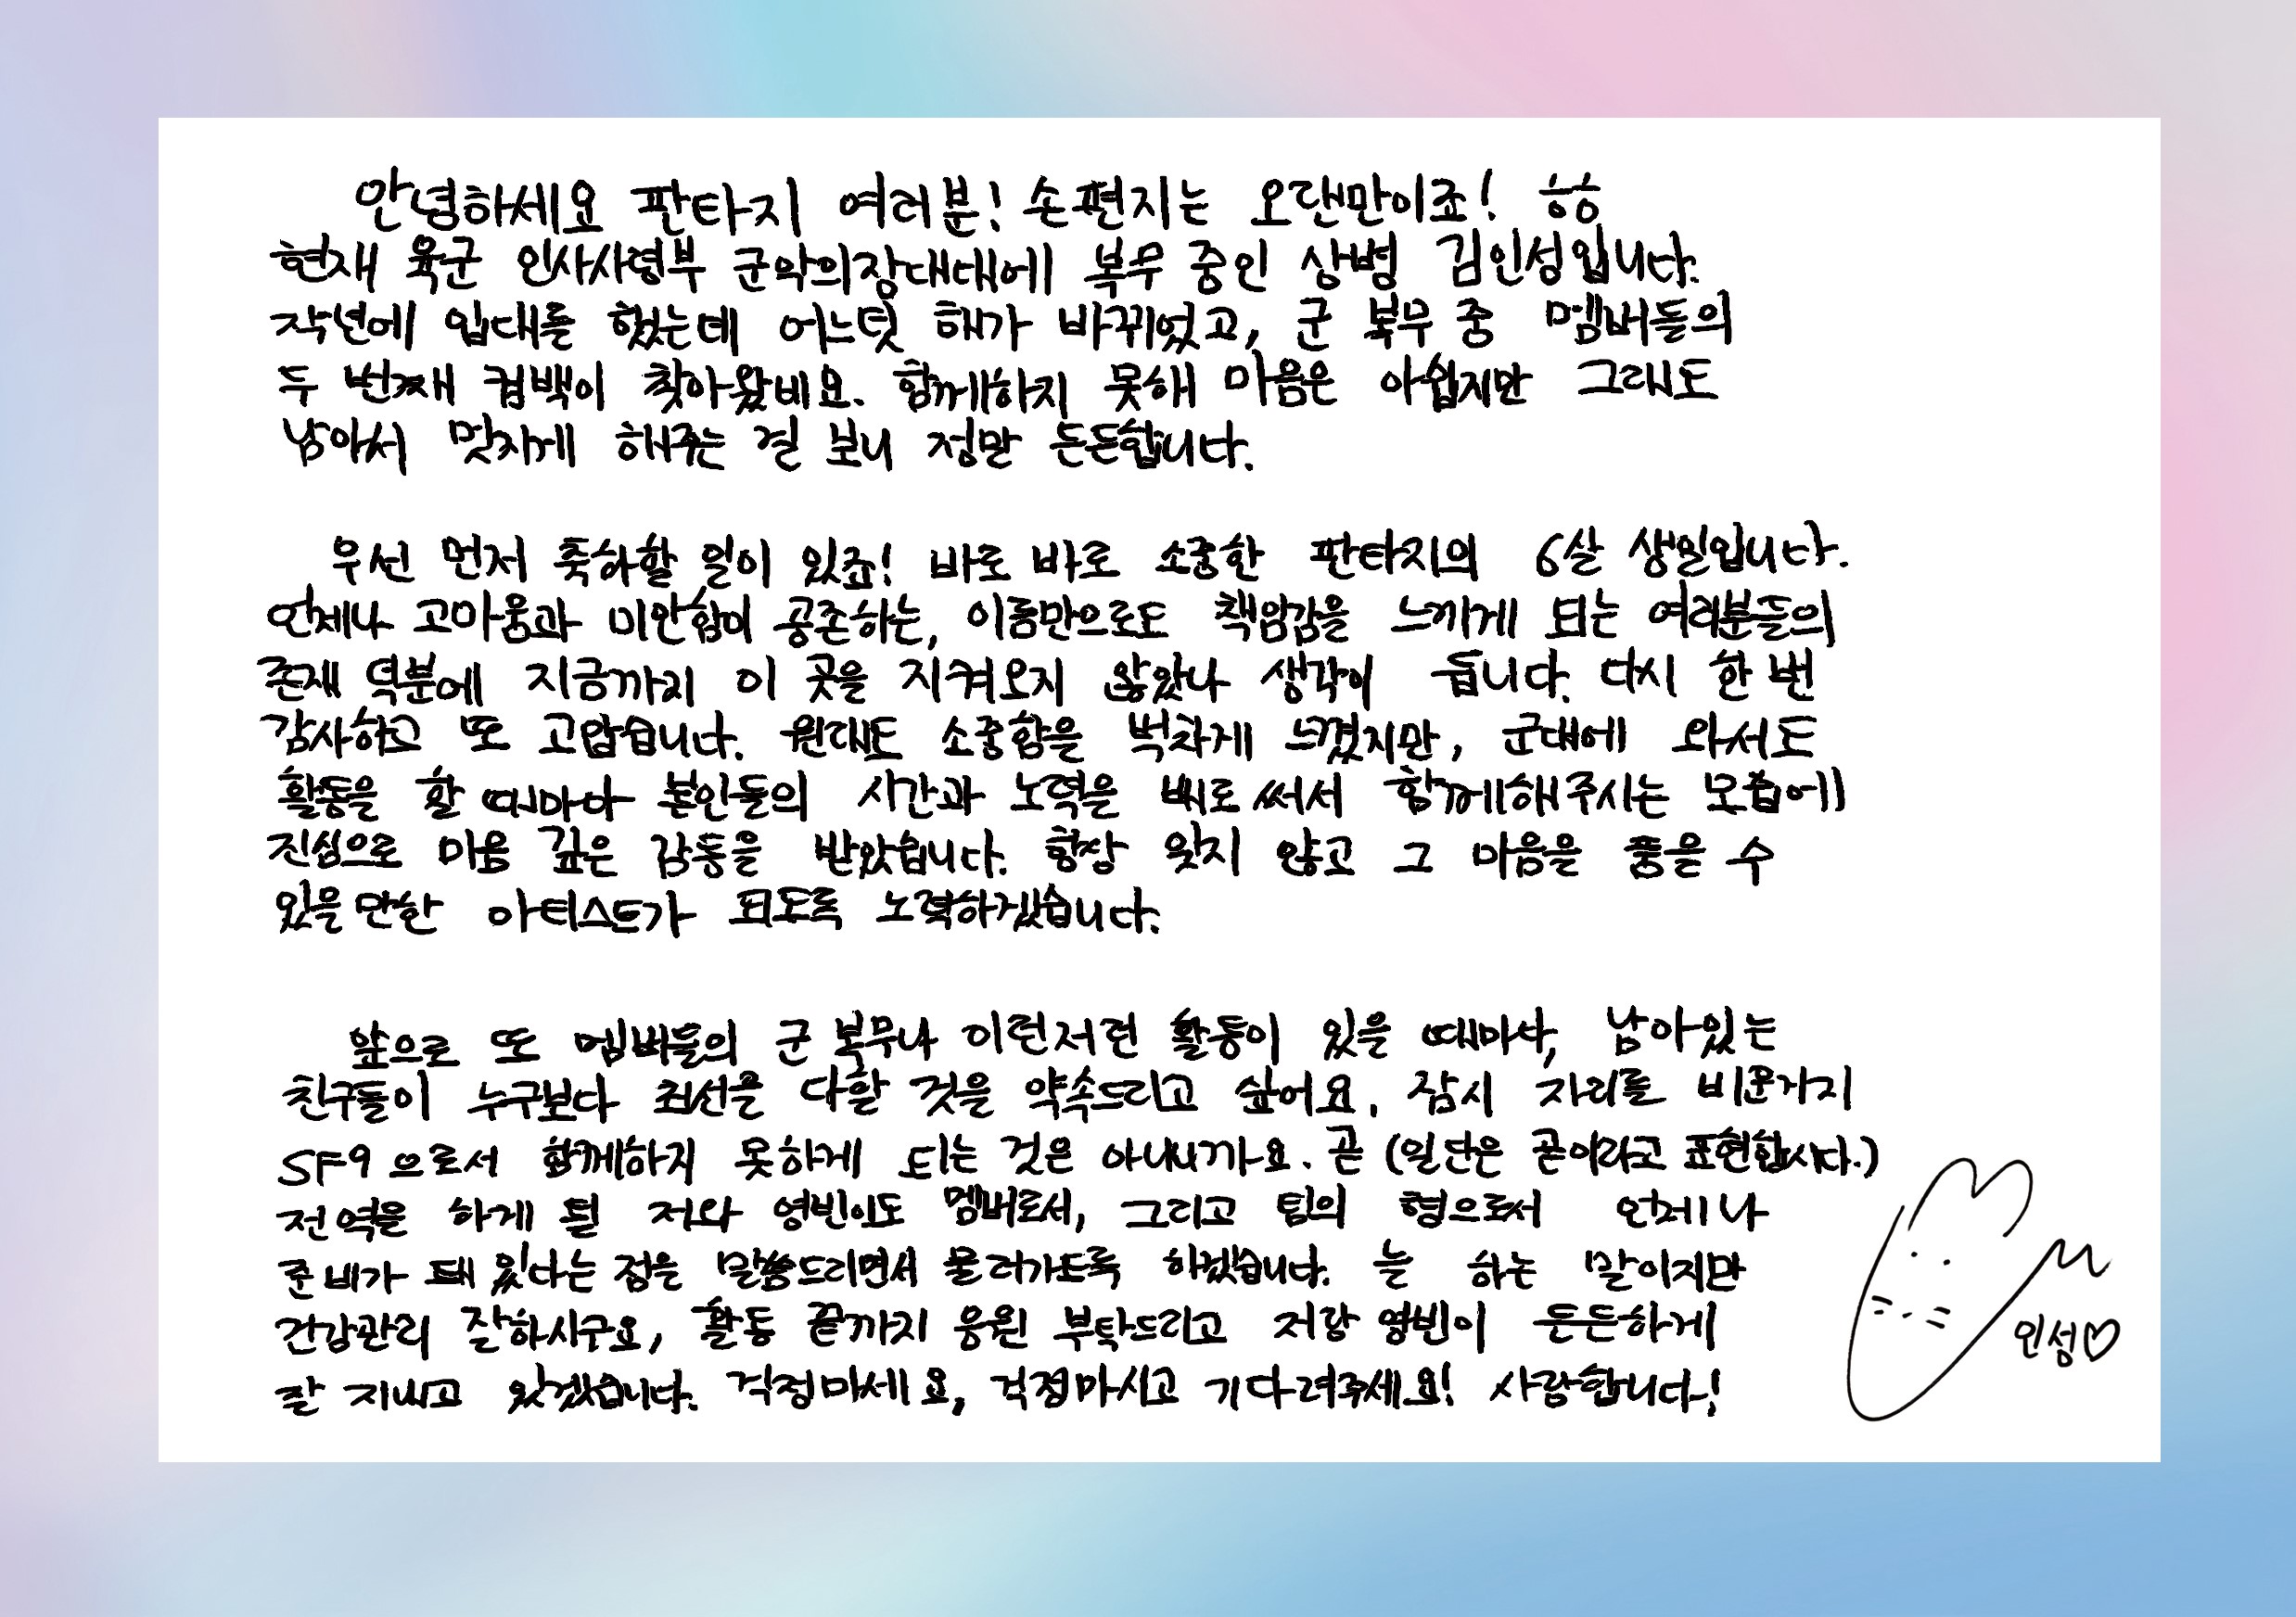 안녕하세요 판타지 여러분! 손편지는 오랜만이죠! ㅎㅎ
현재 육군 인사사령부 군악의장대대에 복무 중인 상병 김인성입니다.
작년에 입대를 했는데 어느덧 해가 바뀌었고, 군 복무 중 멤버들의
두 번째 컴백이 찾아왔네요. 함께하지 못해 마음은 아쉽지만 그래도
남아서 멋지게 해주는 걸 보니 정말 든든합니다.
우선 먼저 축하할 일이 있죠! 바로 바로 소중한 판타지의 6살 생일입니다.
언제나 고마움과 미안함이 공존하는, 이름만으로도 책임감을 느끼게 되는 여러분들의
존재 덕분에 지금까지 이 곳을 지켜오지 않았나 생각이 듭니다. 다시 한 번
감사하고 또 고맙습니다. 원래도 소중함을 벅차게 느꼈지만, 군대에 와서도
활동을 할 때마다 본인들의 시간과 노력을 빼로 써서 함께해주시는 모습에
진심으로 마음 깊은 감동을 받았습니다. 항상 잊지 않고 그 마음을 품을 수
있을만한 아티스트가 되도록 노력하겠습니다.
앞으로 또 멤버들의 군 복무나 이런저런 활동이 있을 때마다, 남아있는
친구들이 누구보다 최선을 다할 것을 약속드리고 싶어요. 잠시 자리를 비운거지
SF9으로서 함께하지 못하게 되는 것은 아니니까요. 곧 (일단은 곧이라고 표현합시다.)
전역을 하게 될 저와 영빈이도 멤버로서, 그리고 팀의 형으로서 언제나
준비가 돼 있다는 점을 말씀드리면서 물러가도록 하겠습니다. 늘 하는 말이지만
건강관리 잘하시구요, 활동 끝까지 응원 부탁드리고 저랑 영빈이 든든하게
잘 지내고 있겠습니다. 걱정마세요, 걱정마시고 기다려주세요! 사랑합니다!
인성♡